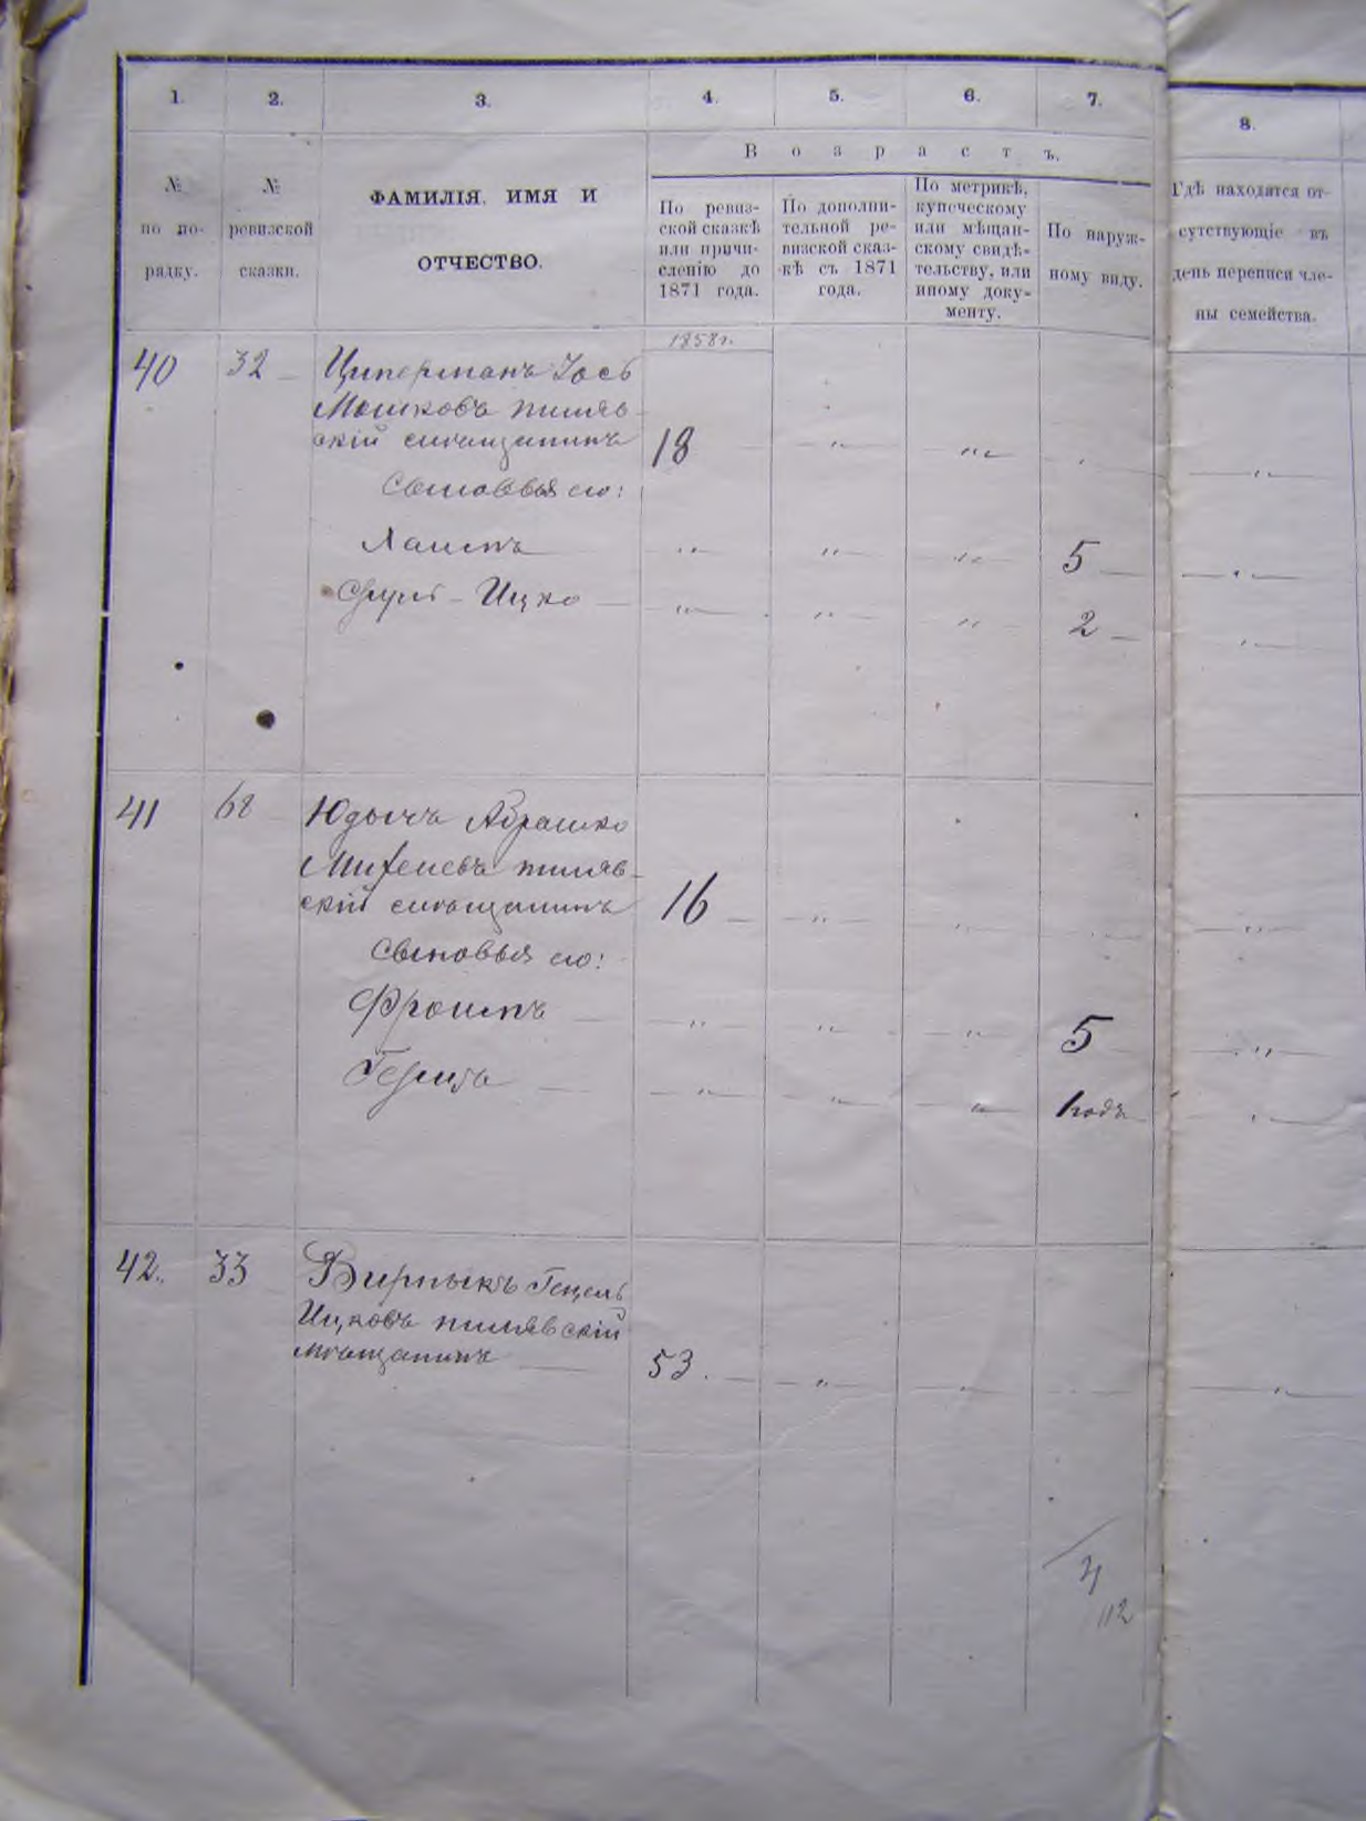 1. 2. 3. 4. 5. 6. 7. 8.
В о з р а с т ъ.
№
по по-
рядку.
№
ревизской
сказки.
ФАМИЛІЯ, ИМЯ И
ОТЧЕСТВО.
По ревиз-
ской сказкѣ
или причи-
сленію до
1871 года.
По дополни-
тельной ре-
визской сказ-
кѣ съ 1871
года.
По метрикѣ,
купеческому
или мѣщан-
скому свидѣ-
тельству, или
иному доку-
менту.
По наруж-
ному виду.
Гдѣ находятся от-
сутствующіе въ
день переписи чле-
ны семейства.
1858 г.
40 32 Циперманъ Іось
Мошковъ пиляв-
скій мѣщанинъ 18
Сыновья его:
Хаимъ 5
Сруль-Ицко 2
41 68 Юдычъ Абрашко
Михелевъ пиляв-
скій мѣщанинъ 16
Сыновья его:
Фроимъ 5
Гершъ 1 годъ
42. 33 Вирныкъ Гецель
Ицковъ пилявскій
мѣщанинъ 53.
4
112